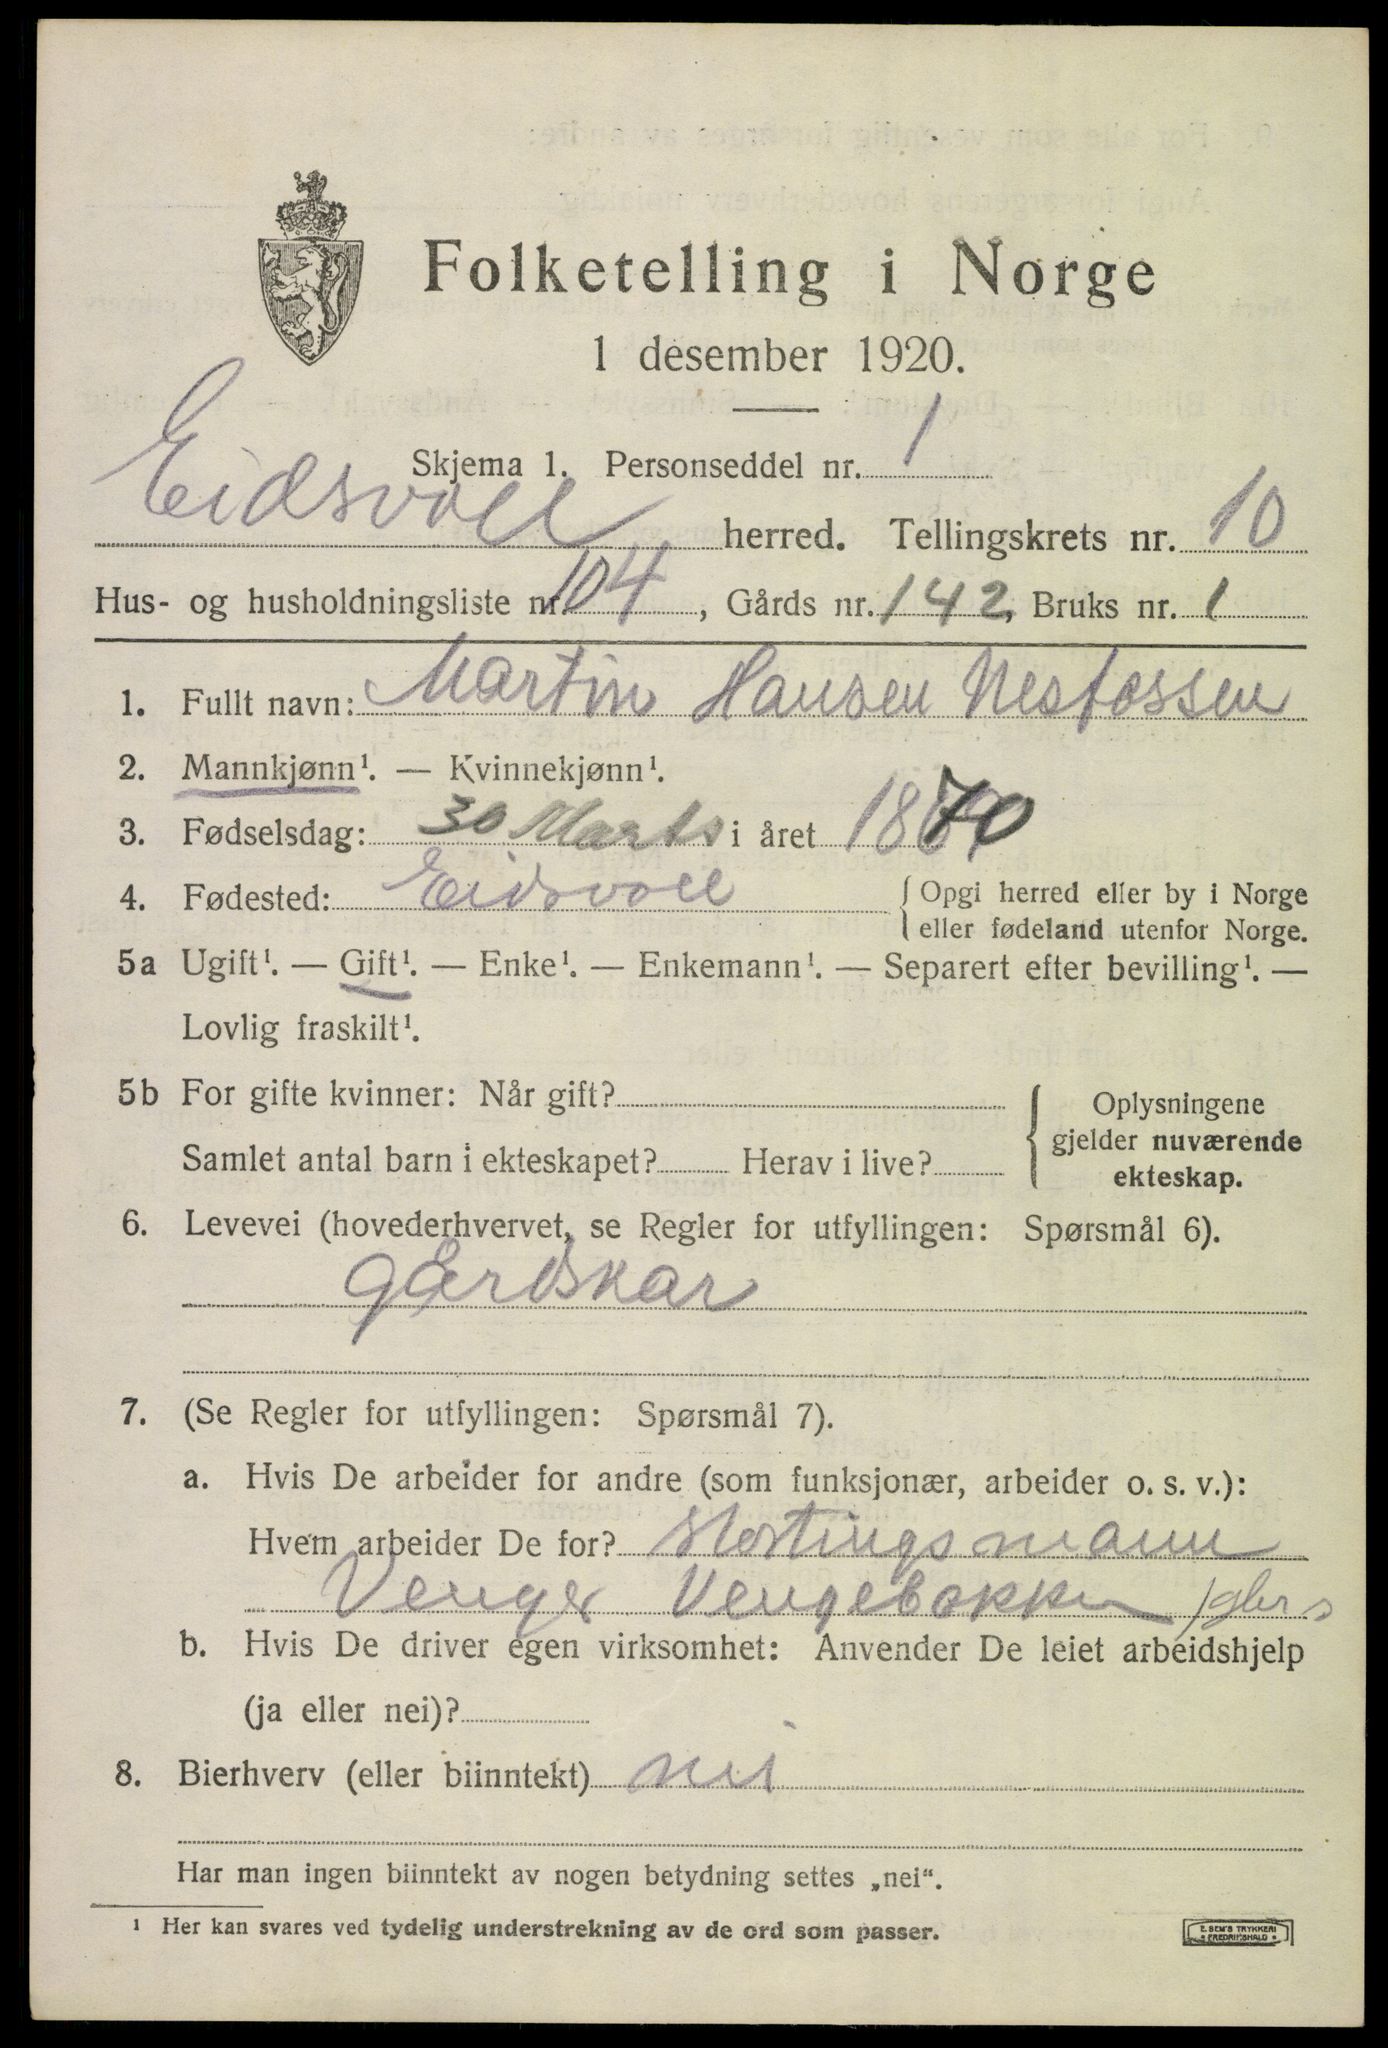 Folketelling i Norge
1 desember 1920.
Skjema 1. Personseddel nr. 1
Eidsvoll herred. Tellingskrets nr. 10
Hus- og husholdningsliste nr. 104, Gårds nr. 142, Bruks nr. 1
1. Fullt navn: Martin Hansen Nesfossen
2. Mannkjønn¹. — Kvinnekjønn¹.
3. Fødselsdag: 30 Marts i året 1870
4. Fødested: Eidsvoll { Opgi herred eller by i Norge
eller fødeland utenfor Norge.
5a Ugift¹. — Gift¹. — Enke¹. — Enkemann¹. — Separert efter bevilling¹. —
Lovlig fraskilt¹.
5b For gifte kvinner: Når gift?
Samlet antal barn i ekteskapet? Herav i live?
{ Oplysningene
gjelder nuværende
ekteskap.
6. Levevei (hovederhvervet, se Regler for utfyllingen: Spørsmål 6).
gårdskar
7. (Se Regler for utfyllingen: Spørsmål 7).
a. Hvis De arbeider for andre (som funksjonær, arbeider o. s. v.):
Hvem arbeider De for? Stortingsmann
Venger Vengebakken
b. Hvis De driver egen virksomhet: Anvender De leiet arbeidshjelp
(ja eller nei)?
8. Bierhverv (eller biinntekt) nei
Har man ingen biinntekt av nogen betydning settes „nei“.
¹ Her kan svares ved tydelig understrekning av de ord som passer.
E. SEM'S TRYKKERI
FREDRIKSHALD